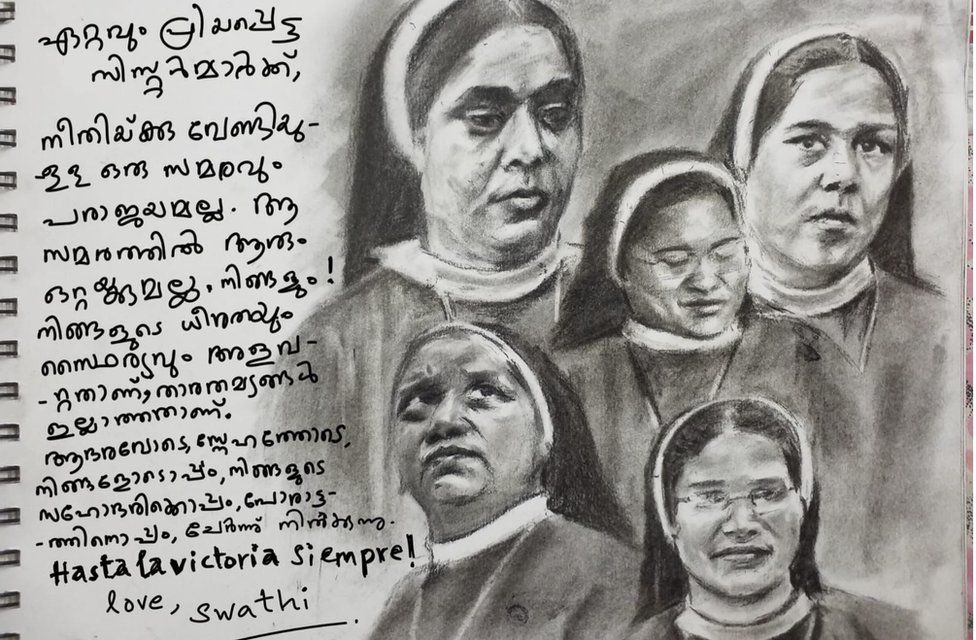 ഏറ്റവും പ്രിയപ്പെട്ട
സിസ്റ്റർമാർക്ക്,
നീതിയ്ക്കു വേണ്ടിയു-
ള്ള ഒരു സമരവും
പരാജയമല്ല. ആ
സമരത്തിൽ ആരും
ഒറ്റയ്ക്കുമല്ല. നിങ്ങളും!
നിങ്ങളുടെ ധീരതയും
സ്ഥൈര്യവും അളവ-
-റ്റതാണ്, താരതമ്യങ്ങൾ
ഇല്ലാത്തതാണ്.
ആദരവോടെ, സ്നേഹത്തോടെ,
നിങ്ങളോടൊപ്പം, നിങ്ങളുടെ
സഹോദരിക്കൊപ്പം, പോരാട്ട-
-ത്തിനൊപ്പം, ചേർന്ന് നിൽക്കുന്നു.
Hasta la victoria Siempre!
love, Swathi